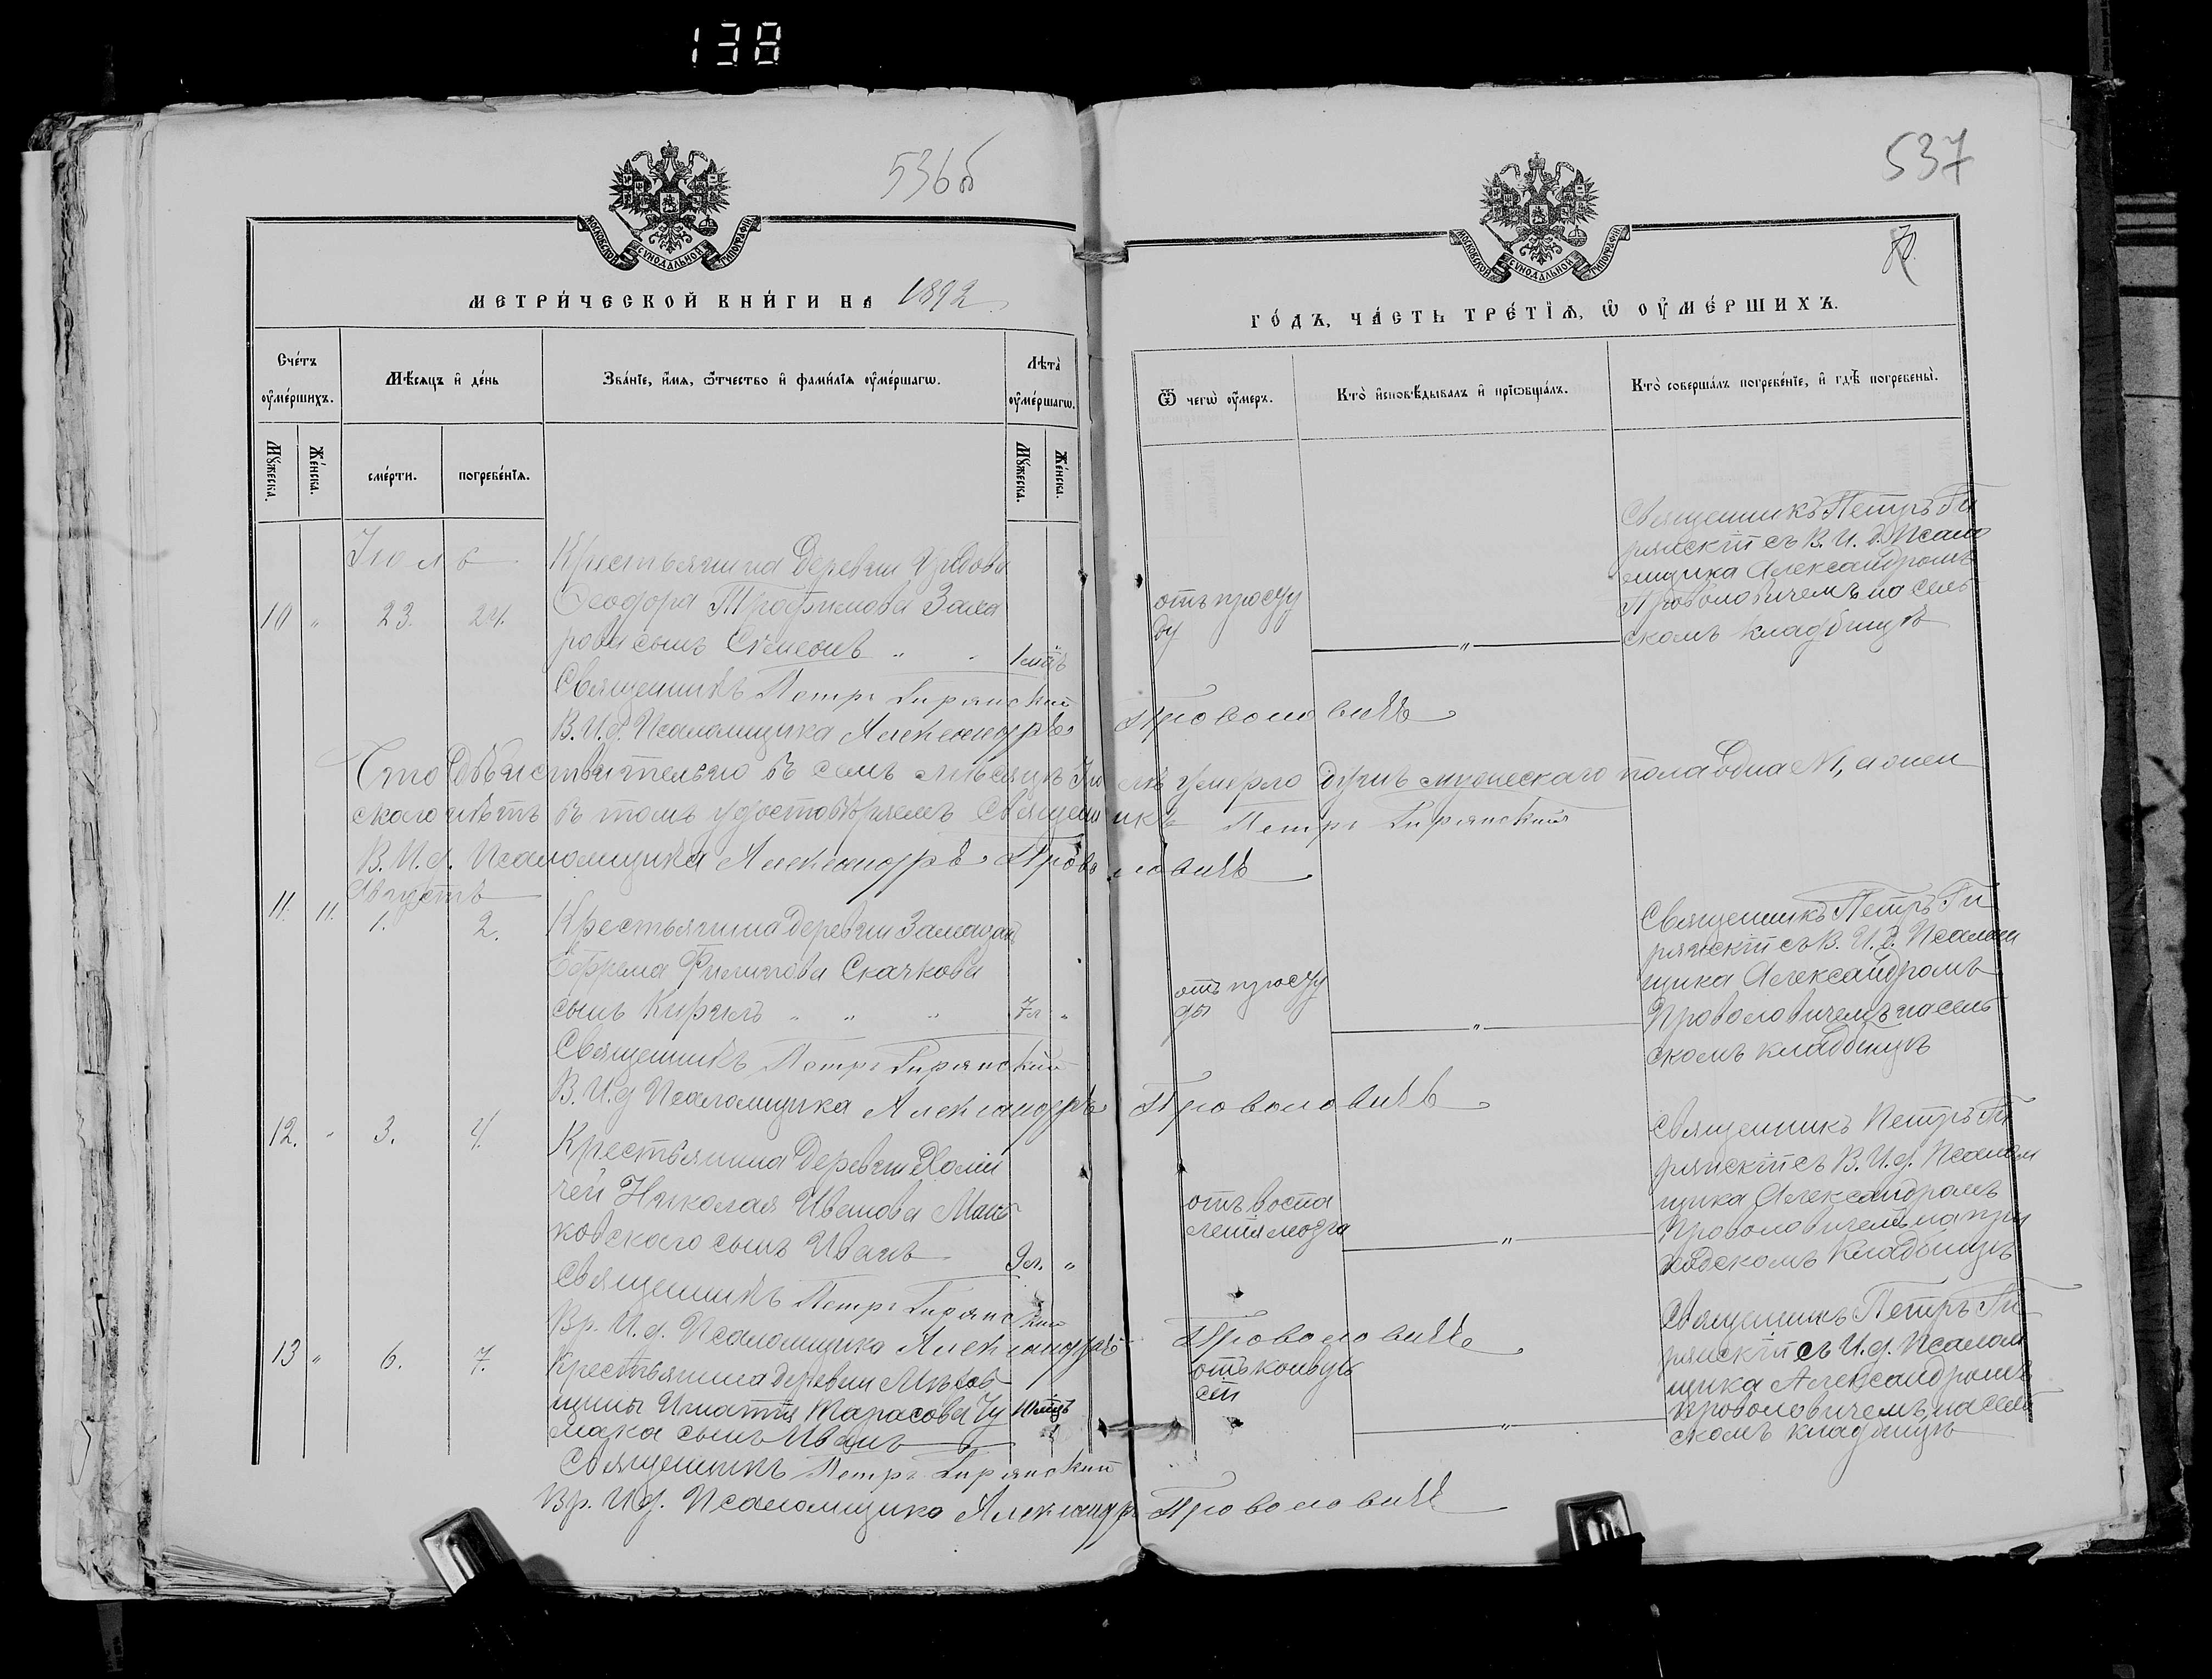 138
536б
537
МОСКОВСКОЙ СѴНОДАЛЬНОЙ ТИПОГРАФІИ
МОСКОВСКОЙ СѴНОДАЛЬНОЙ ТИПОГРАФІИ
МЕТРИ́ЧЕСКОЙ КНИ́ГИ НА 1892
ГО́ДЪ, ЧА́СТЬ ТРЕ́ТІѦ, Ѡ ОУ҆МЕ́РШИХЪ.
Сче́тъ оу҆ме́ршихъ.
Мѣ́сяцъ и҆ де́нь
Зва́нїе, и҆́мѧ, ѿтчество и҆ фами́лїѧ оу҆ме́ршагѡ.
Лѣта̀ оу҆ме́ршагѡ.
Ѿ чегѡ̀ оу҆́меръ.
Кто̀ и҆сповѣ́дывалъ и҆ прїѡбща́лъ.
Кто̀ соверша́лъ погребе́нїе, и҆ гдѣ̀ погребены̀.
Му́жеска.
Же́нска.
сме́рти.
погребе́нїѧ.
Му́жеска.
Же́нска.
Іюль
10 " 23. 24.
Крестьянина Деревни
Ѳеодора Трофимова
сынъ Симеонъ " "
отъ просту
ду
"
Священникъ Петръ Ги
рянскій съ В. И. д. Псало
мщика Александромъ
Проволовичемъ на сель
скомъ кладбищѣ
Священникъ Петръ Гирянскій
В. И. д. Псаломщика Александръ Проволовичъ
Что Дѣйствительно въ семъ мѣсяцѣ Іюлѣ умерло душъ мужескаго пола одна №1, а жен
скаго нѣтъ въ томъ удостовѣряемъ Священникъ Петръ Гирянскій
В. И. д. Псаломщика Александръ Проволовичъ
Августъ
11. 11. 1. 2.
Крестьянина деревни
Ефрема Филипова Скачкова
сынъ Кирилъ " " "
7л "
отъ просту
ды
"
Священникъ Петръ Ги
рянскій съ В. И. д. Псалом
щика Александромъ
Проволовичемъ на сель
скомъ кладбищѣ
Священникъ Петръ Гирянскій
В. И. д. Псаломщика Александръ Проволовичъ
12. " 3. 4.
Крестьянина Деревни
Николая Иванова Мань
ковскаго сынъ Иванъ
9л. "
отъ воспа
ленія мозга
"
Священникъ Петръ Ги
рянскій съ В. И. д. Псалом
щика Александромъ
Проволовичемъ на при
ходскомъ Кладбищѣ
Священникъ Петръ Гирянскій
Вр. И. д. Псаломщика Александръ Проволовичъ
13 " 6. 7.
Крестьянина деревни
Игнатія Тарасова Чу
мака сынъ Иванъ
отъ конвуль
сій
"
Священникъ Петръ Ги
рянскій съ И. д. Псалом
щика Александромъ
Проволовичемъ, на сель
скомъ кладбищѣ
Священникъ Петръ Гирянскій
Вр. И. д. Псаломщика Александръ Проволовичъ